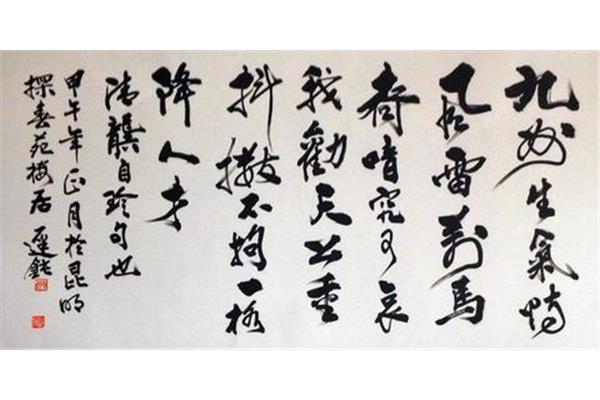 九州生氣恃
風雷萬馬
齊喑究可哀
我勸天公重
抖擻不拘一格
降人才
清龔自珍句也
甲午年正月於昆明
探春苑梅居